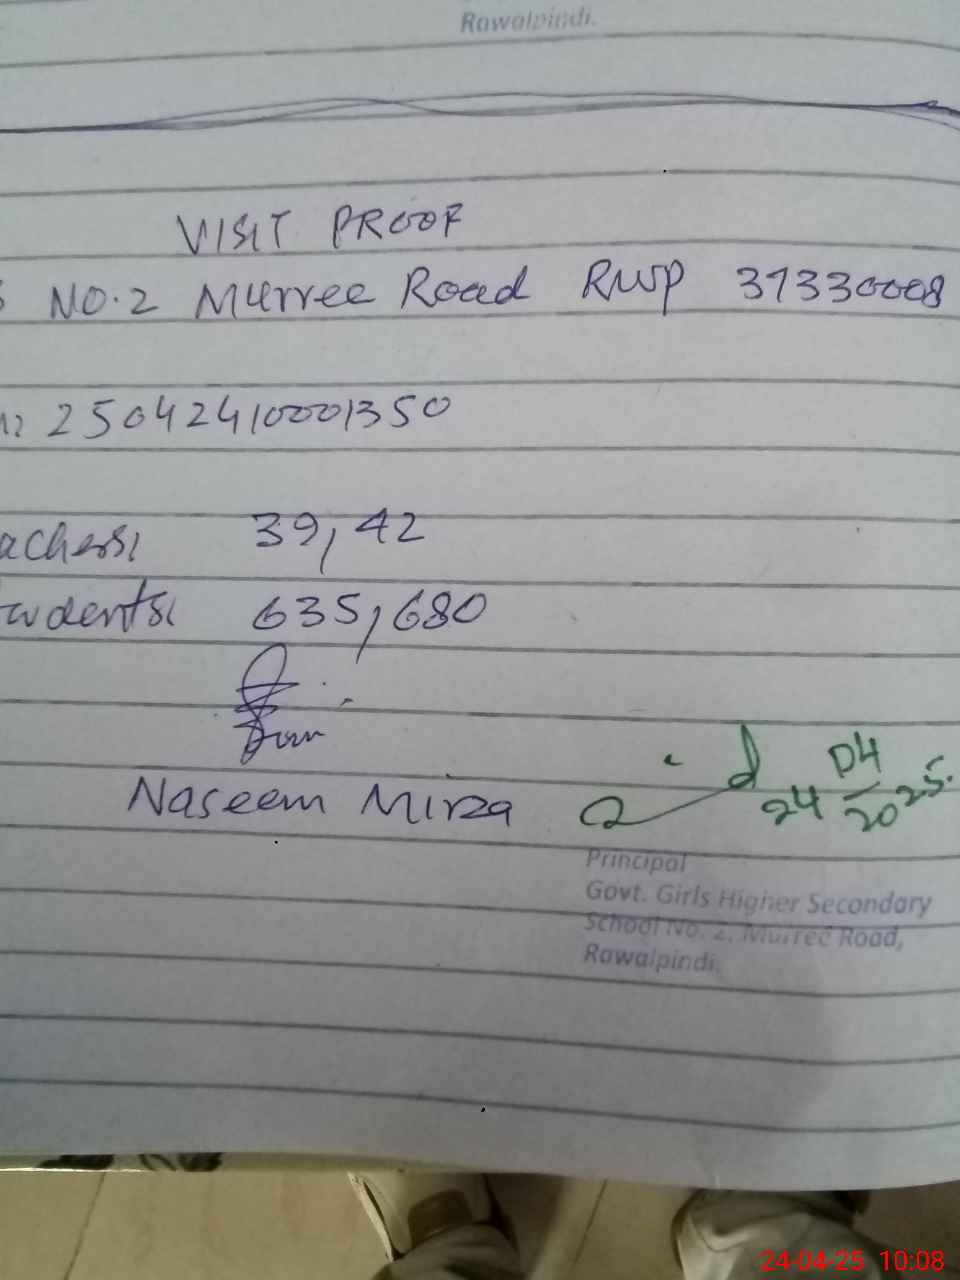 Rawalpindi.
VISIT PROOF
S NO.2 Murree Road RWP 37330008
25042410001350
achers: 39, 42
tudents: 635, 680
Naseem Mirza
24 04 2025.
Principal
Govt. Girls Higher Secondary
School No. 2, Murree Road,
Rawalpindi.
24-04-25 10:08